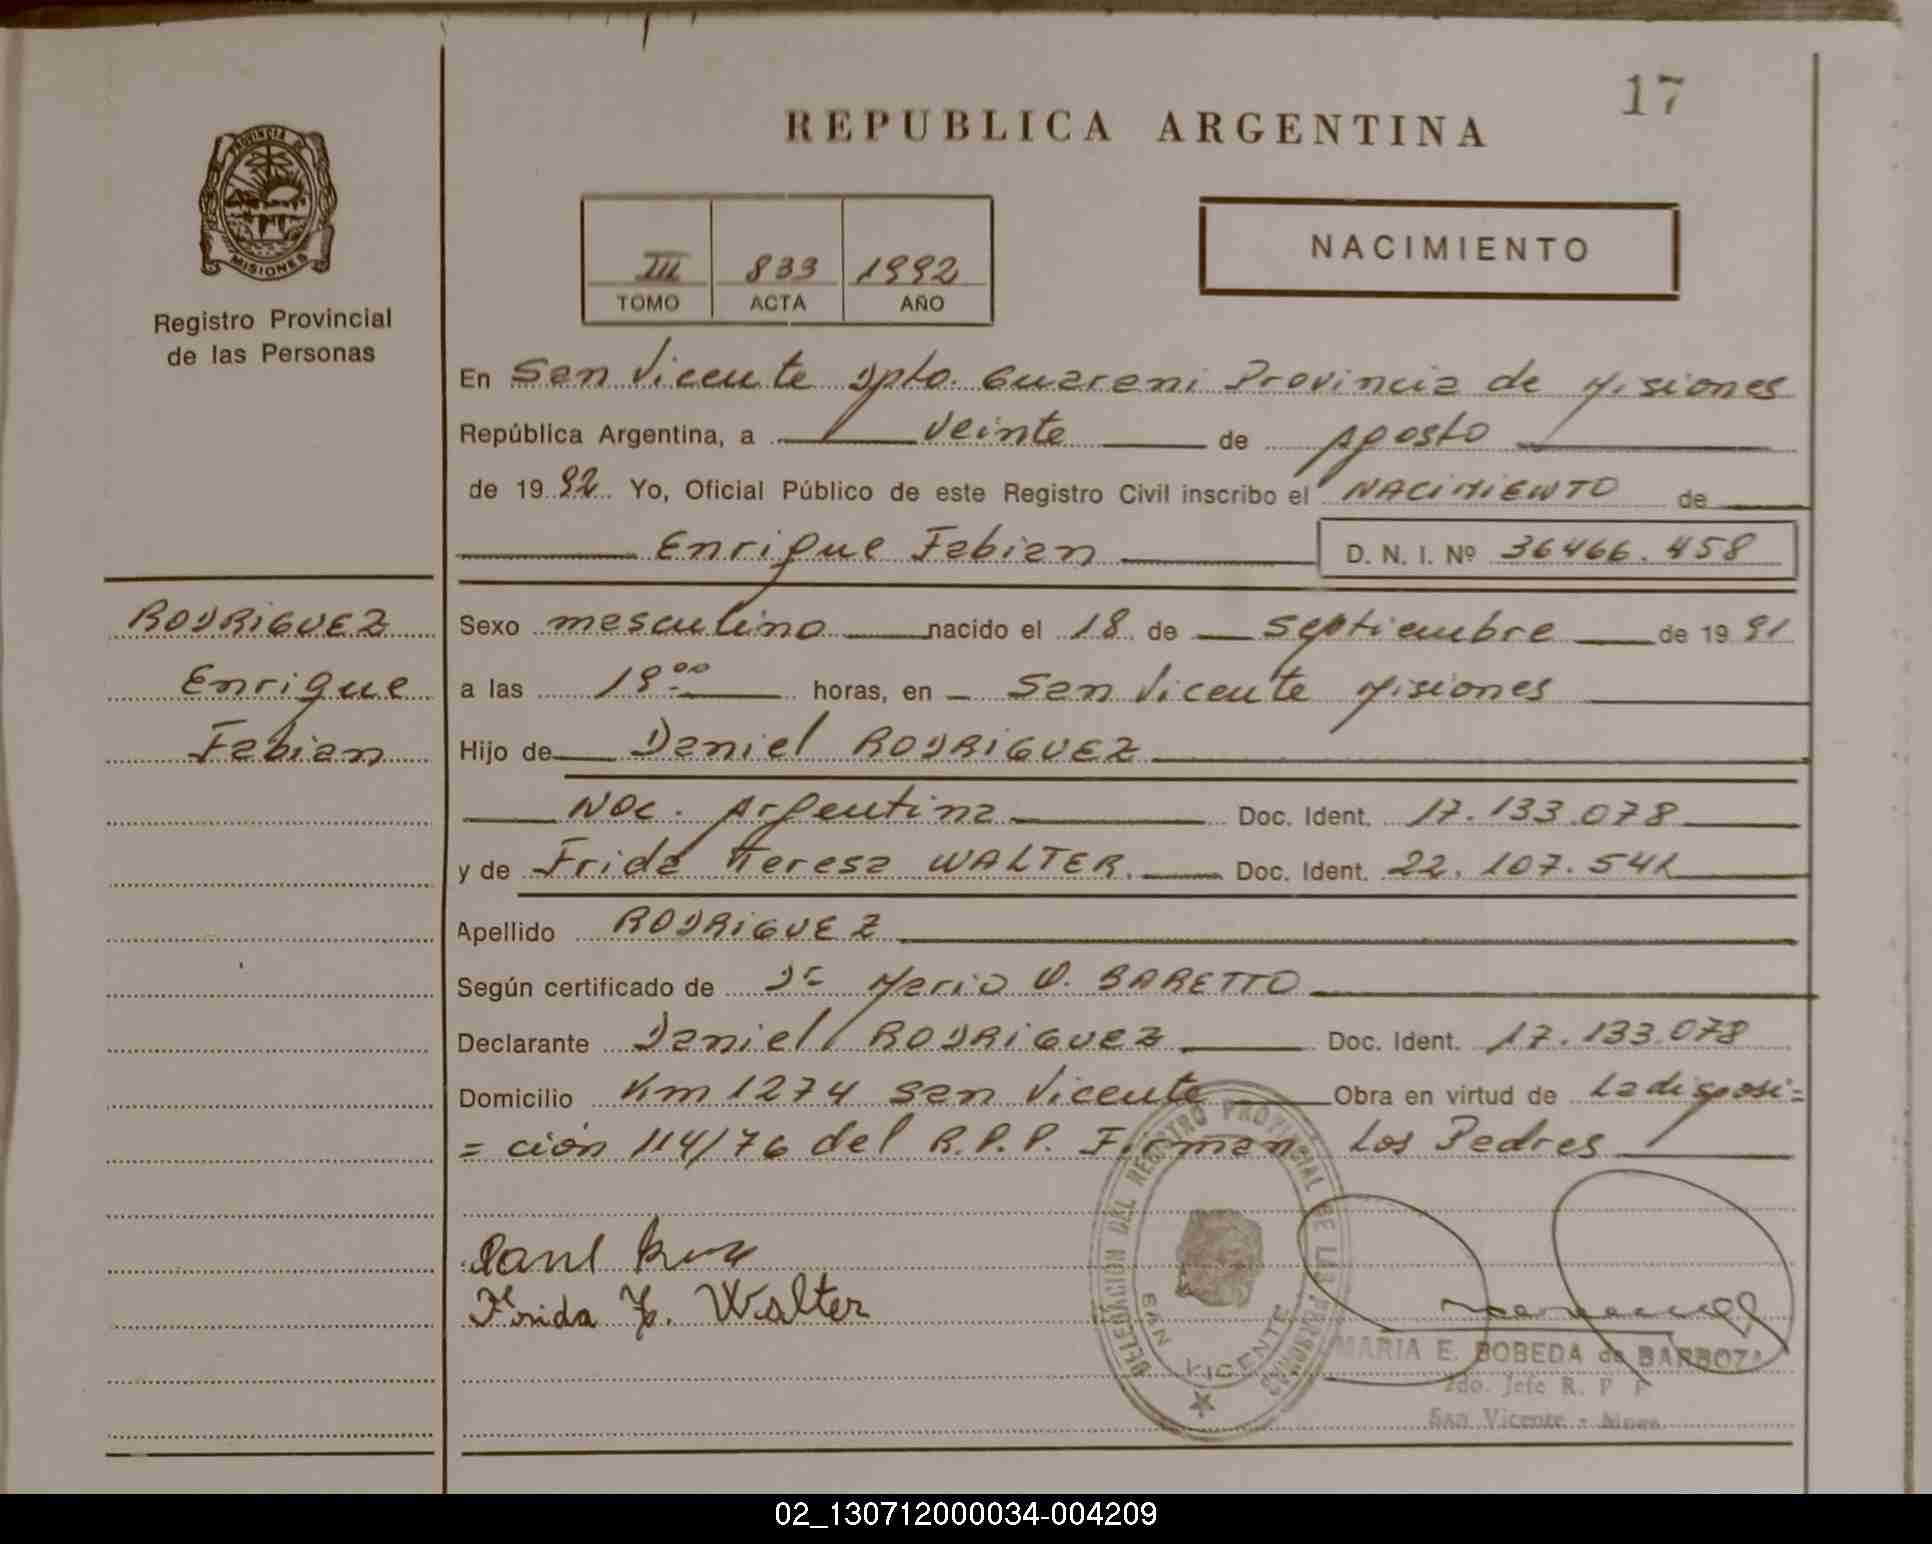 17
REPUBLICA ARGENTINA
PROVINCIA DE
MISIONES
Registro Provincial
de las Personas
III 833 1992
TOMO ACTA AÑO
NACIMIENTO
En San Vicente Dpto. Guarani Provincia de Misiones
República Argentina, a veinte de Agosto
de 1992 Yo, Oficial Público de este Registro Civil inscribo el NACIMIENTO de
Enrique Fabian D. N. I. Nº 36466.458
RODRIGUEZ
Enrique
Fabian
Sexo masculino nacido el 18 de septiembre de 1991
a las 19⁰⁰ horas, en San Vicente Misiones
Hijo de Daniel RODRIGUEZ
Nac. Argentina Doc. Ident. 17.133.078
y de Frida Teresa WALTER. Doc. Ident. 22.107.541
Apellido RODRIGUEZ
Según certificado de Dr Mario O. BARETTO
Declarante Daniel RODRIGUEZ Doc. Ident. 17.133.078
Domicilio Km 1274 San Vicente Obra en virtud de La disposi=
=ción 114/76 del R.P.P. Firman Los Padres
Frida T. Walter
DELEGACIÓN DEL REGISTRO PROVINCIAL DE LAS PERSONAS
SAN VICENTE
MARIA E. BOBEDA de BARBOZA
2do. Jefe R. P P
San Vicente - Mnes.
02_130712000034-004209